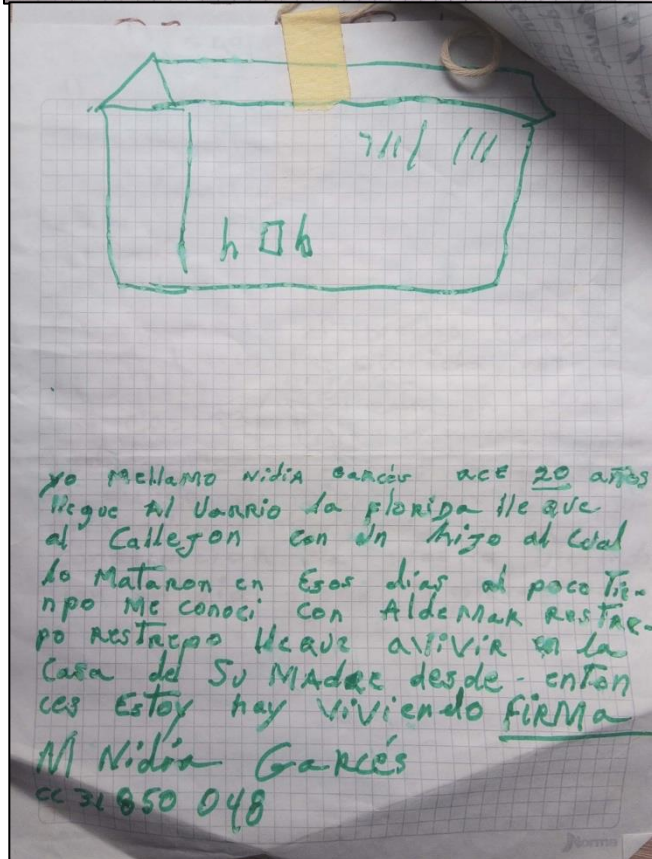 yo Mellamo Nidia Garcés ace 20 años
llegue Al Varrio la florida lleque
al Callejon con un hijo al cual
lo Mataron en Esos dias al poco Tie-
npo Me conoci con AldeMar RESTRE-
po RESTREPO lleque avivir en la
Casa del Su MAdre desde - enton
ces EsToy hay viviendo FiRMa
M Nidia Garcés
cc 31 850 048
Norma